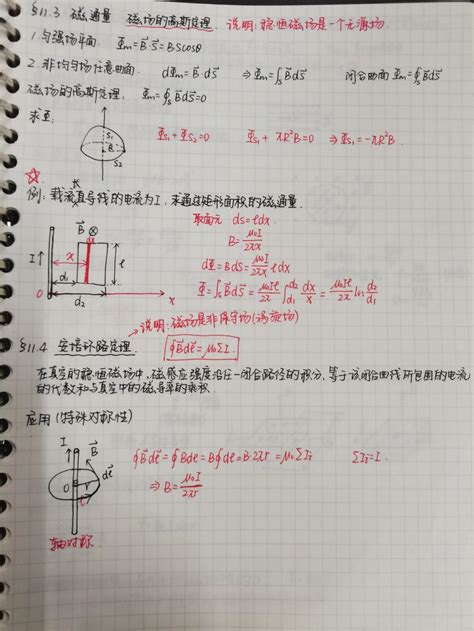 §11.3 磁通量 磁场的高斯定理. 说明:稳恒磁场是一个无源场.
1.匀强场平面. Φm=B⃗·S⃗=BScosθ
2.非均匀场任意曲面. dΦm=B⃗·dS⃗ ⇒Φm=∫s B⃗dS⃗ 闭合曲面Φm=∮s B⃗dS⃗
磁场的高斯定理. Φm=∮s B⃗dS⃗=0
求Φ.
S1
R
S2
Φs1+Φs2=0 Φs1+πR²B=0 ⇒Φs1=-πR²B.
例:载流直导线的电流为I,求通过矩形面积的磁通量.
取面元 ds=ldx
B=μ0I/2πx
dΦ=BdS=μ0I/2πx ldx
Φ=∫s B⃗dS⃗=μ0Il/2π ∫d1d2 dx/x=μ0Il/2π ln d2/d1
B⃗ ⊗
I↑
x
l
d1
d2
0
x
说明:磁场是非保守场(涡旋场)
§11.4 安培环路定理. ∮B⃗dl⃗=μ0ΣI.
在真空的稳恒磁场中,磁感应强度沿任一闭合路径的积分,等于该闭合曲线所包围的电流
的代数和与真空中的磁导率的乘积.
应用(特殊对称性)
I
B⃗
dl⃗
O
r
轴对称.
∮B⃗dl⃗=∮Bdl=B∮dl=B·2πr=μ0ΣIi ΣIi=I.
⇒B=μ0I/2πr